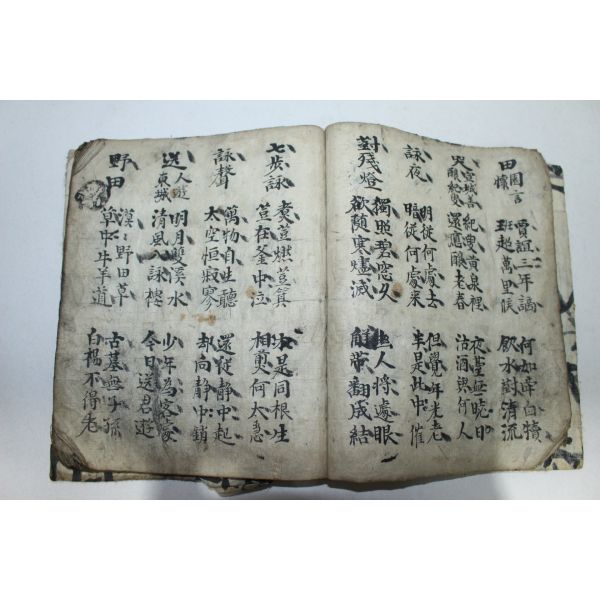 田園言懷
賈誼三年謫
班超萬里侯
何如牽白犢
飲水對清流
哭宣城善釀紀叟
紀叟黃泉裡
還應釀老春
夜臺無曉日
沽酒與何人
詠夜
明從何處去
暗從何處來
但覺年光老
半是此中催
對殘燈
獨照碧窓久
欲随寒燼滅
幽人將處眠
解帶翻成結
七步詠
煮荳燃荳箕
荳在釜中泣
本是同根生
相煎何太急
詠聲
萬物自生聽
太空恒寂寥
還從静中起
却向静中銷
送人遊東城
明月雙溪水
清風八詠樓
少年為客處
今日送君遊
野田
漠〻野田草
草中牛羊道
古墓無子孫
白楊不得老